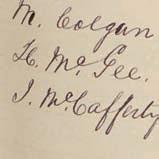 M. Colgan
H. McGee.
J. McCafferty